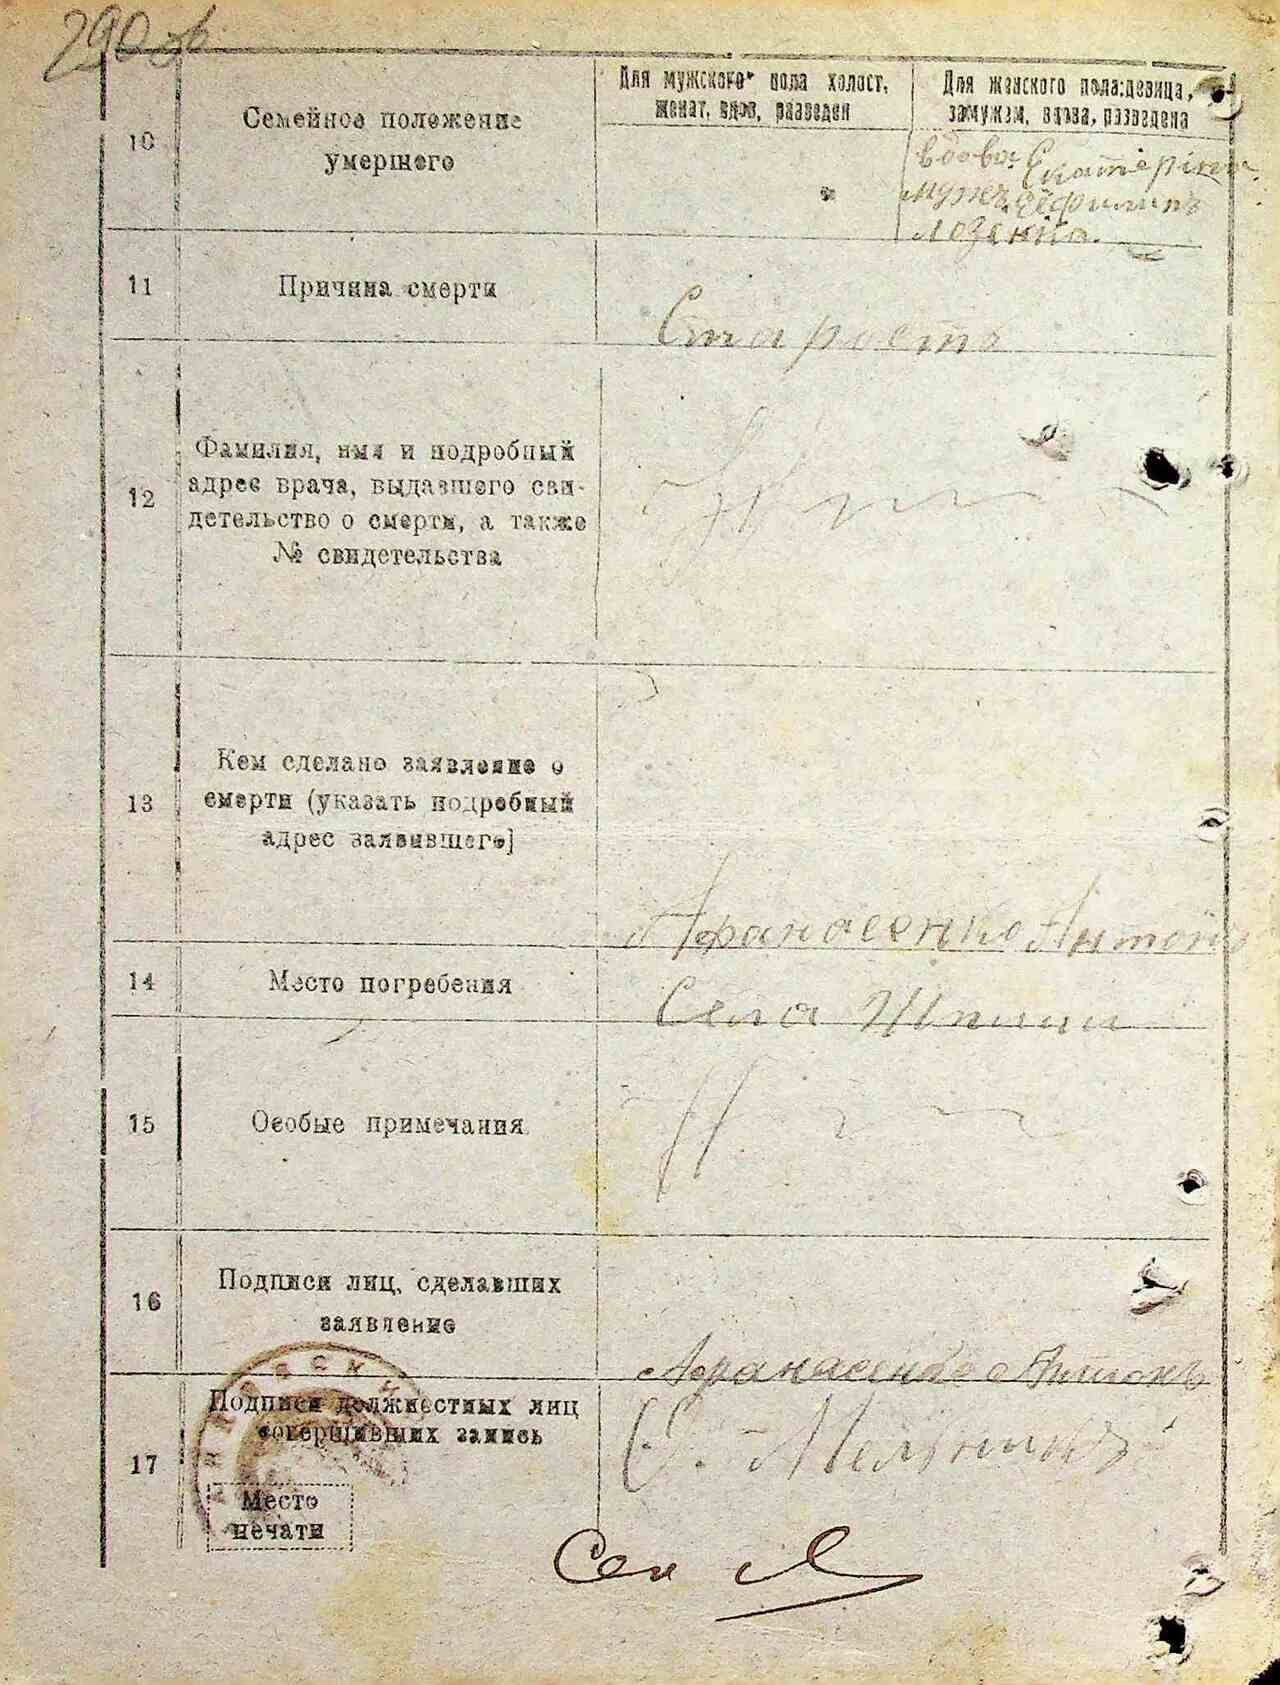 290 об
Для мужского пола холост,
женат, вдов, разведен
Для женского пола: девица,
замужем, вдова, разведена
10
Семейное положение
умершего
вдова Екатеріна
мужъ Филипъ
Лозенко.
11
Причина смерти
Старость
12
Фамилия, имя и подробный
адрес врача, выдавшего сви-
детельство о смерти, а также
№ свидетельства
13
Кем сделано заявление о
смерти (указать подробный
адрес заявившего]
Афанасенко Антонъ
14
Место погребения
Села Шпили
15
Особые примечания
16
Подписи лиц, сделавших
заявление
Афанасенко Антонъ
17
Подписи должностных лиц
совершивших запись
Место
печати
Мельникъ
Сек